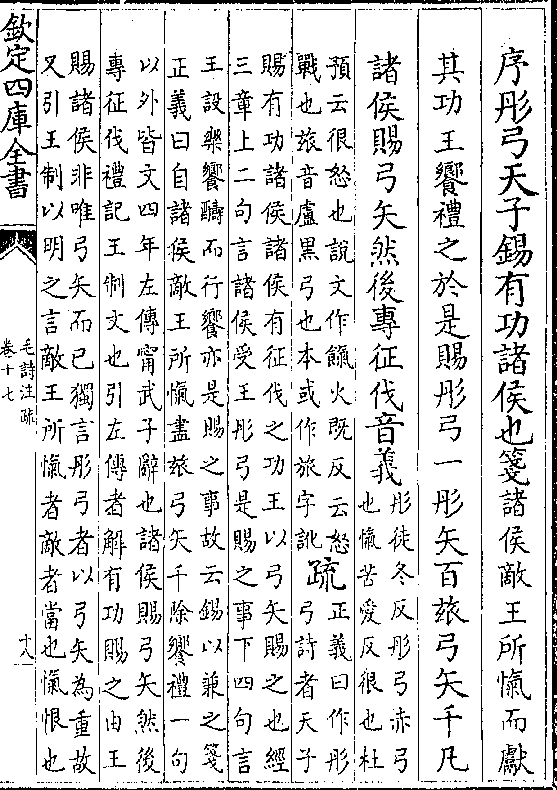 序彤弓天子錫有功諸侯也箋諸侯敵王所愾而獻
其功王饗禮之於是賜彤弓一彤矢百玈弓矢千凡
諸侯賜弓矢然後專征伐音義
彤徒冬反彤弓赤弓
也愾苦愛反很也杜
預云很怒也說文作鎎火既反云怒
戰也玈音盧黑弓也本或作旅字訛
疏
正義曰作彤
弓詩者天子
賜有功諸侯諸侯有征伐之功王以弓矢賜之也經
三章上二句言諸侯受王彤弓是賜之事下四句言
王設樂饗醻而行饗亦是賜之事故云錫以兼之箋
正義曰自諸侯敵王所愾盡玈弓矢千除饗禮一句
以外皆文四年左傳甯武子辭也諸侯賜弓矢然後
專征伐禮記王制文也引左傳者解有功賜之由王
賜諸侯非唯弓矢而已獨言彤弓者以弓矢為重故
又引王制以明之言敵王所愾者敵者當也愾恨也
欽定四庫全書
毛詩注疏
卷十七
十八